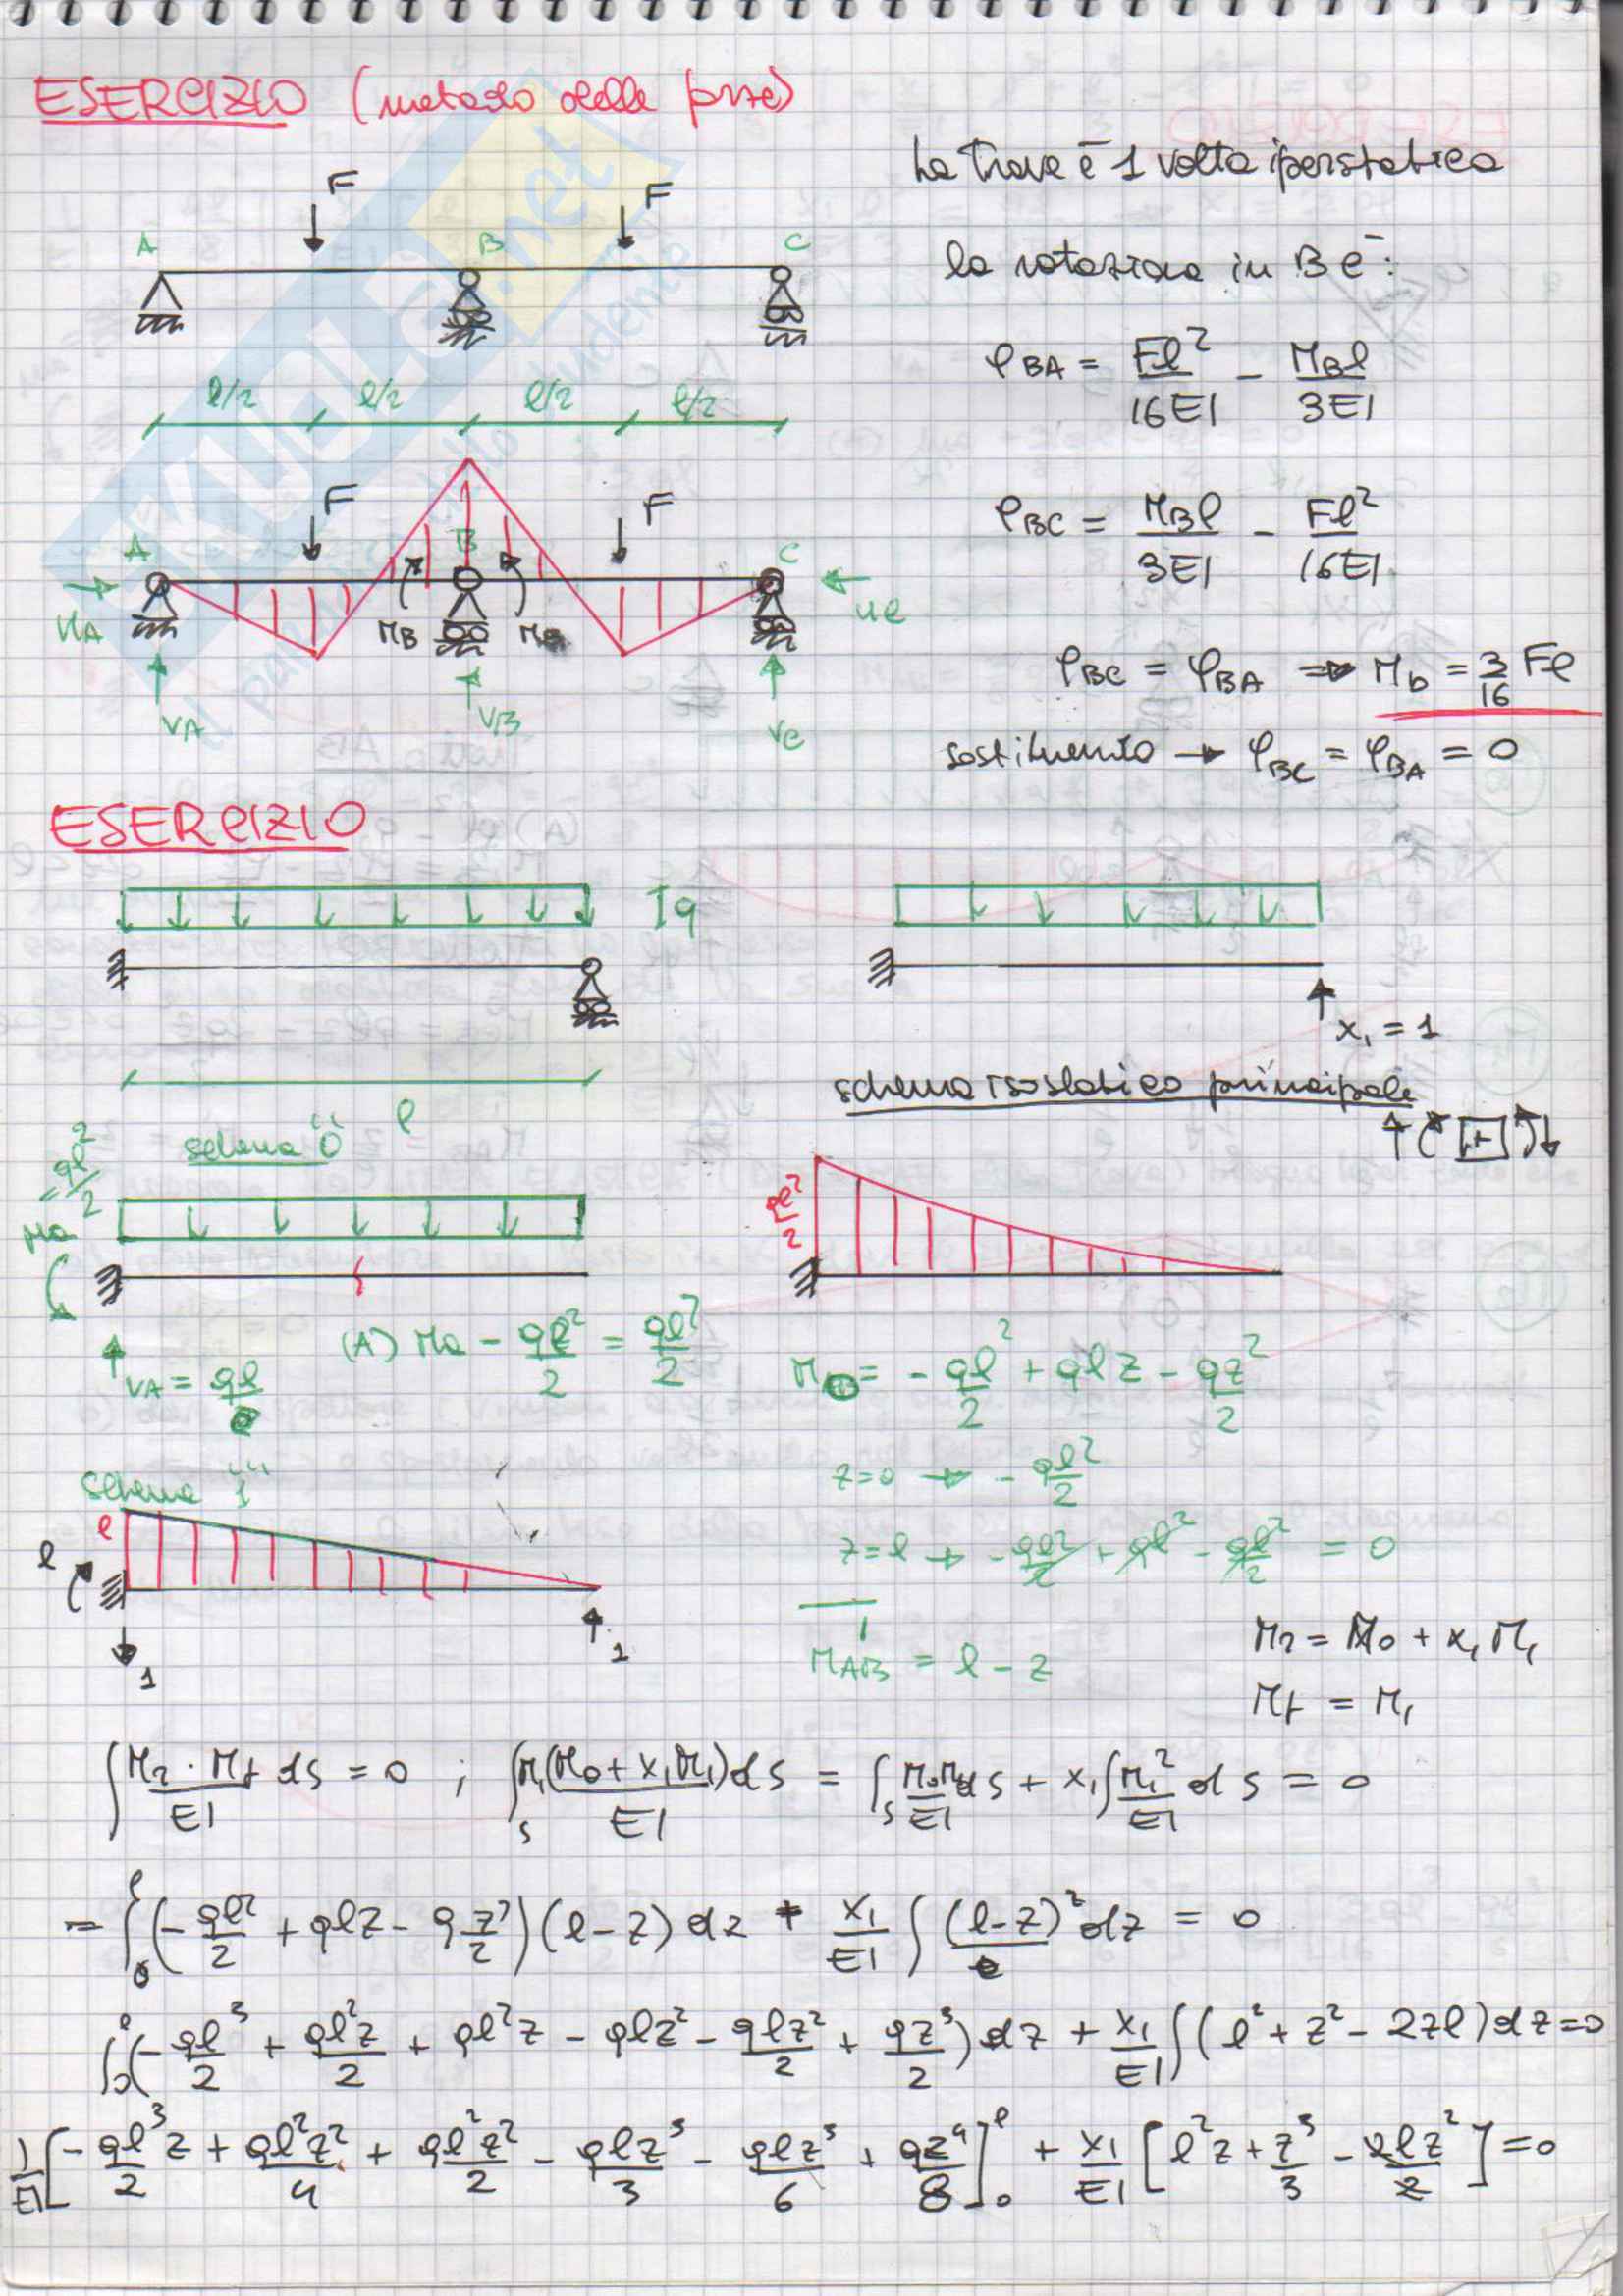 ESERCIZIO (metodo delle forze)
La trave è 1 volta iperstatica
F F
A B C
la rotazione in B è:
l/2 l/2 l/2 l/2
φBA = Fl²/16EI - MBl/3EI
F F
A B C
HA MB MB HC
VA VB VC
φBC = MBl/3EI - Fl²/16EI
φBC = φBA ⇒ Mb = 3/16 Fl
sostituendo → φBC = φBA = 0
ESERCIZIO
q
x₁ = 1
l
schema isostatico principale
schema "0"
+
Ma = ql²/2
ql²/2
VA = ql
(A) Ma - ql²/2 = ql²/2
M0 = - ql²/2 + qlz - qz²/2
z=0 → - ql²/2
z=l → - ql²/2 + ql² - ql²/2 = 0
schema "1"
l
l
1
1
MAB = l - z
M2 = M0 + x₁M₁
Mf = M₁
∫ M2 · Mf/EI ds = 0 ; ∫s M₁(M0 + x₁M₁)/EI ds = ∫s M0M₁/EI ds + x₁∫ M₁²/EI ds = 0
= ∫0l (- ql²/2 + qlz - q z²/2)(l - z) dz + x₁/EI ∫ (l-z)² dz = 0
∫0l (- ql³/2 + ql²z/2 + ql²z - qlz² - qlz²/2 + qz³/2) dz + x₁/EI ∫ (l² + z² - 2zl) dz = 0
1/EI [- ql³/2 z + ql²z²/4 + ql²z²/2 - qlz³/3 - qlz³/6 + qz⁴/8]0l + x₁/EI [l²z + z³/3 - 2lz²/2] = 0